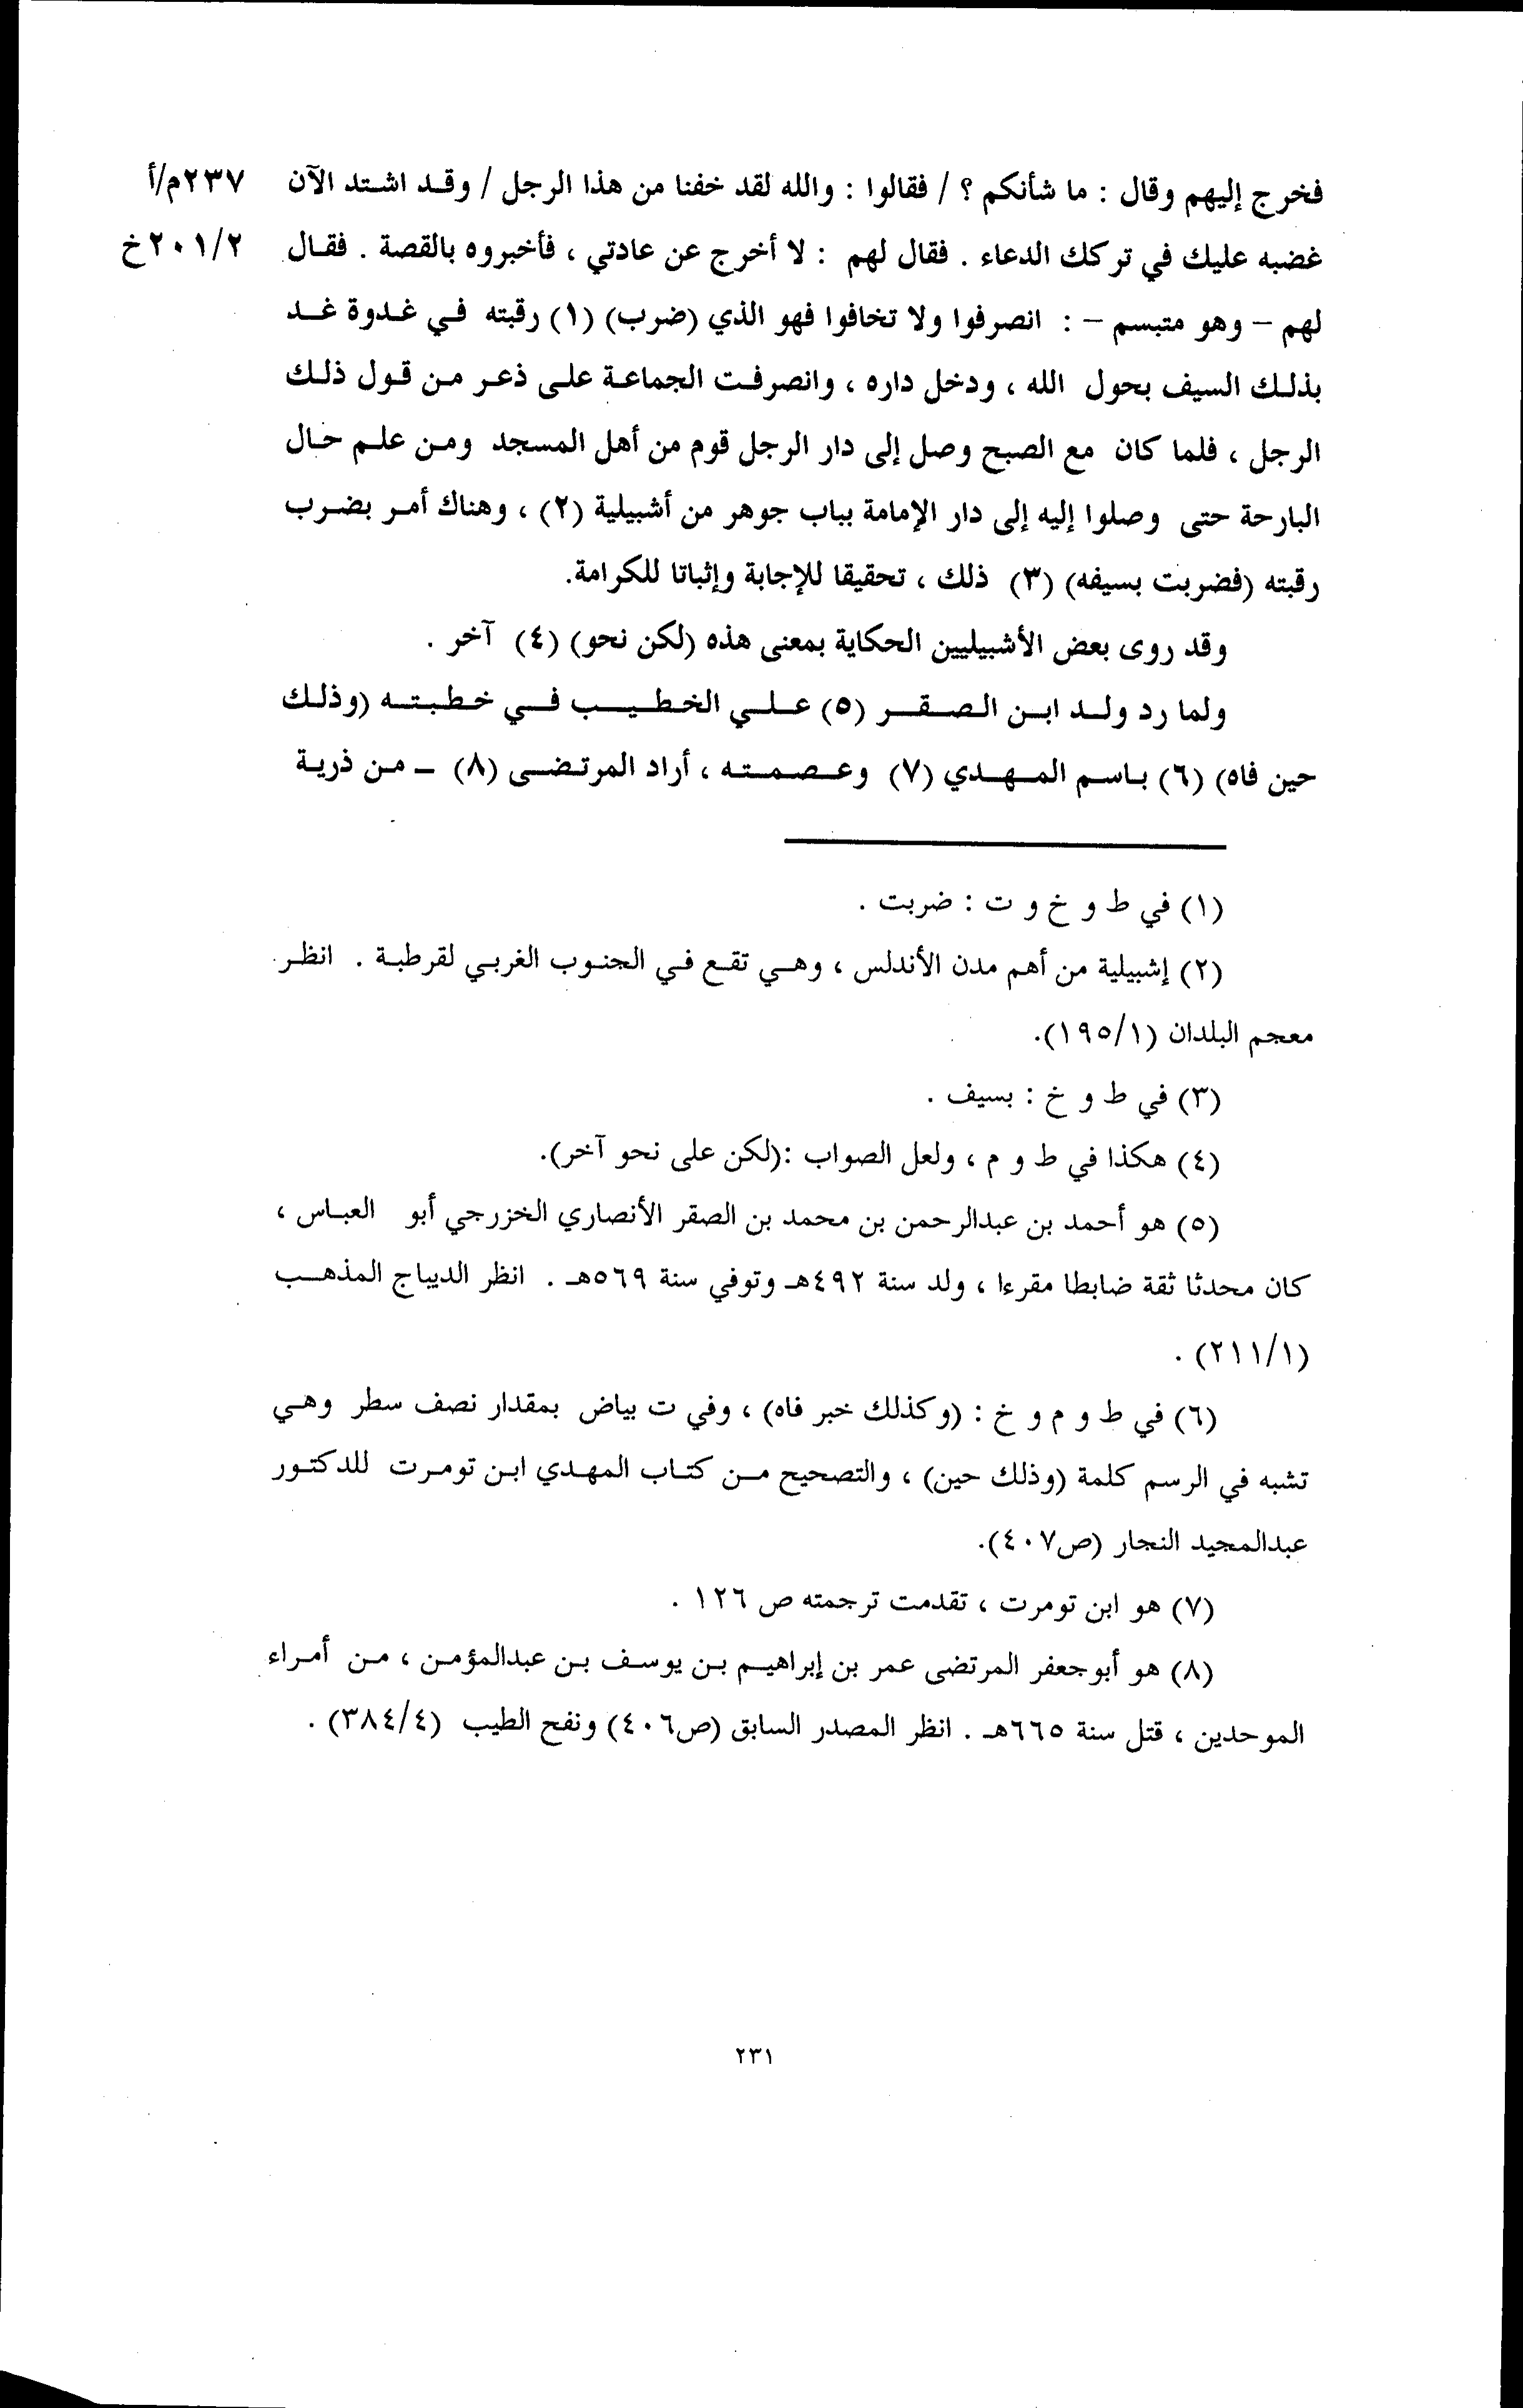 فخرج إليهم وقال : ما شأنكم ؟ / فقالوا : والله لقد خفنا من هذا الرجل / وقد اشتد الآن ٢٣٧م/أ
غضبه عليك في تركك الدعاء . فقال لهم : لا أخرج عن عادتي ، فأخبروه بالقصة . فقال ٢٠١/٢خ
لهم – وهو متبسم – : انصرفوا ولا تخافوا فهو الذي (ضرب) (١) رقبته في غدوة غد
بذلك السيف بحول الله ، ودخل داره ، وانصرفت الجماعة على ذعر من قول ذلك
الرجل ، فلما كان مع الصبح وصل إلى دار الرجل قوم من أهل المسجد ومن علم حال
البارحة حتى وصلوا إليه إلى دار الإمامة بباب جوهر من أشبيلية (٢) ، وهناك أمر بضرب
رقبته (فضربت بسيفه) (٣) ذلك ، تحقيقا للإجابة وإثباتا للكرامة.
وقد روى بعض الأشبيليين الحكاية بمعنى هذه (لكن نحو) (٤) آخر .
ولما رد ولد ابن الصقر (٥) علي الخطيب في خطبته (وذلك
حين فاه) (٦) باسم المهدي (٧) وعصمته ، أراد المرتضى (٨) – من ذرية
(١) في ط و خ و ت : ضربت .
(٢) إشبيلية من أهم مدن الأندلس ، وهي تقع في الجنوب الغربي لقرطبة . انظر
معجم البلدان (١٩٥/١).
(٣) في ط و خ : بسيف .
(٤) هكذا في ط و م ، ولعل الصواب :(لكن على نحو آخر).
(٥) هو أحمد بن عبدالرحمن بن محمد بن الصقر الأنصاري الخزرجي أبو العباس ،
كان محدثا ثقة ضابطا مقرءا ، ولد سنة ٤٩٢هـ وتوفي سنة ٥٦٩هـ . انظر الديباج المذهب
(٢١١/١) .
(٦) في ط و م و خ : (وكذلك خبر فاه) ، وفي ت بياض بمقدار نصف سطر وهي
تشبه في الرسم كلمة (وذلك حين) ، والتصحيح من كتاب المهدي ابن تومرت للدكتور
عبدالمجيد النجار (ص٤٠٧).
(٧) هو ابن تومرت ، تقدمت ترجمته ص ١٢٦ .
(٨) هو أبوجعفر المرتضى عمر بن إبراهيم بن يوسف بن عبدالمؤمن ، من أمراء
الموحدين ، قتل سنة ٦٦٥هـ . انظر المصدر السابق (ص٤٠٦) ونفح الطيب (٣٨٤/٤) .
٢٣١